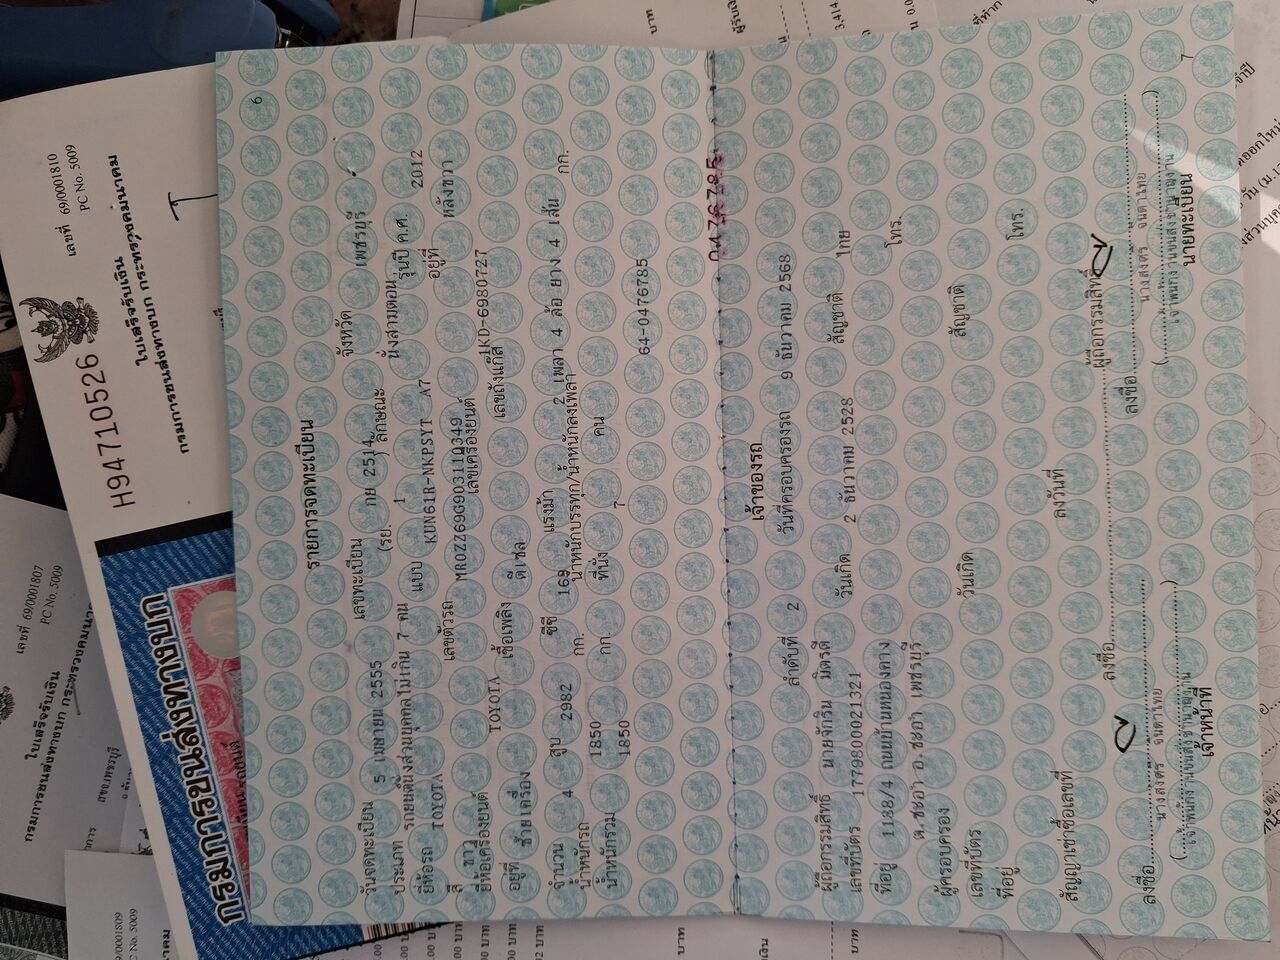 6
รายการจดทะเบียน
วันจดทะเบียน 5 เมษายน 2555 เลขทะเบียน กย 2514 จังหวัด เพชรบุรี
ประเภท รถยนต์นั่งส่วนบุคคลไม่เกิน 7 คน (รย. 1 ) ลักษณะ นั่งสามตอน
ยี่ห้อรถ TOYOTA แบบ KUN61R-NKPSYT A7 รุ่นปี ค.ศ. 2012
สี ขาว เลขตัวรถ MR0ZZ69G903110349 อยู่ที่ หลังขวา
ยี่ห้อเครื่องยนต์ TOYOTA เลขเครื่องยนต์ 1KD-6980727
อยู่ที่ ซ้ายเครื่อง เชื้อเพลิง ดีเซล เลขถังแก๊ส
จำนวน 4 สูบ 2982 ซีซี 163 แรงม้า 2 เพลา 4 ล้อ ยาง 4 เส้น
น้ำหนักรถ 1850 กก. น้ำหนักบรรทุก/น้ำหนักลงเพลา กก.
น้ำหนักรวม 1850 กก. ที่นั่ง 7 คน
64-0476785
0476785
เจ้าของรถ
ลำดับที่ 2 วันที่ครอบครองรถ 9 ธันวาคม 2568
ผู้ถือกรรมสิทธิ์ นายจักริน มิตรดี
เลขที่บัตร 1779800021321 วันเกิด 2 ธันวาคม 2528 สัญชาติ ไทย
ที่อยู่ 1188/4 ถนนบ้านหนองตาง โทร.
ต.ชะอำ อ.ชะอำ เพชรบุรี
ผู้ครอบครอง
เลขที่บัตร วันเกิด สัญชาติ
ที่อยู่ โทร.
สัญญาเช่าซื้อเลขที่ ลงวันที่
ลงชื่อ ผู้ถือกรรมสิทธิ์
ลงชื่อ ลงชื่อ
นายทะเบียน
เจ้าหน้าที่
7
เลขที่ 69/0001810
PC No. 5009
ใบเสร็จรับเงิน
กรมการขนส่งทางบก กระทรวงคมนาคม
H94710526
กรมการขนส่งทางบก
เลขที่ 69/0001807
PC No. 5009
ใบเสร็จรับเงิน
กรมการขนส่งทางบก กระทรวงคมนาคม
69/0001809
PC No. 5009